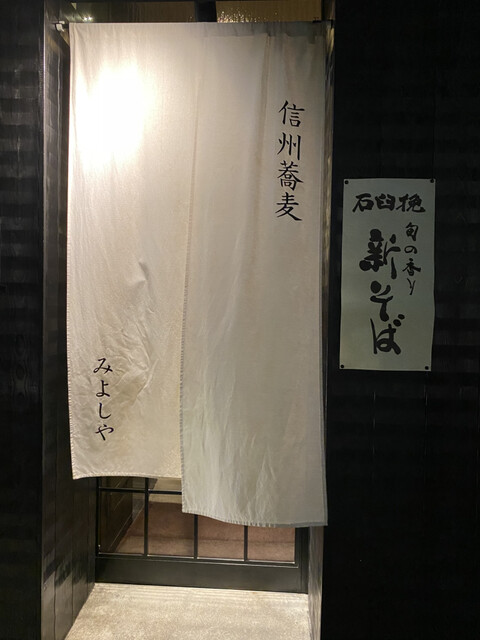 信州蕎麦
みよしや
石臼挽
旬の香り
新そば